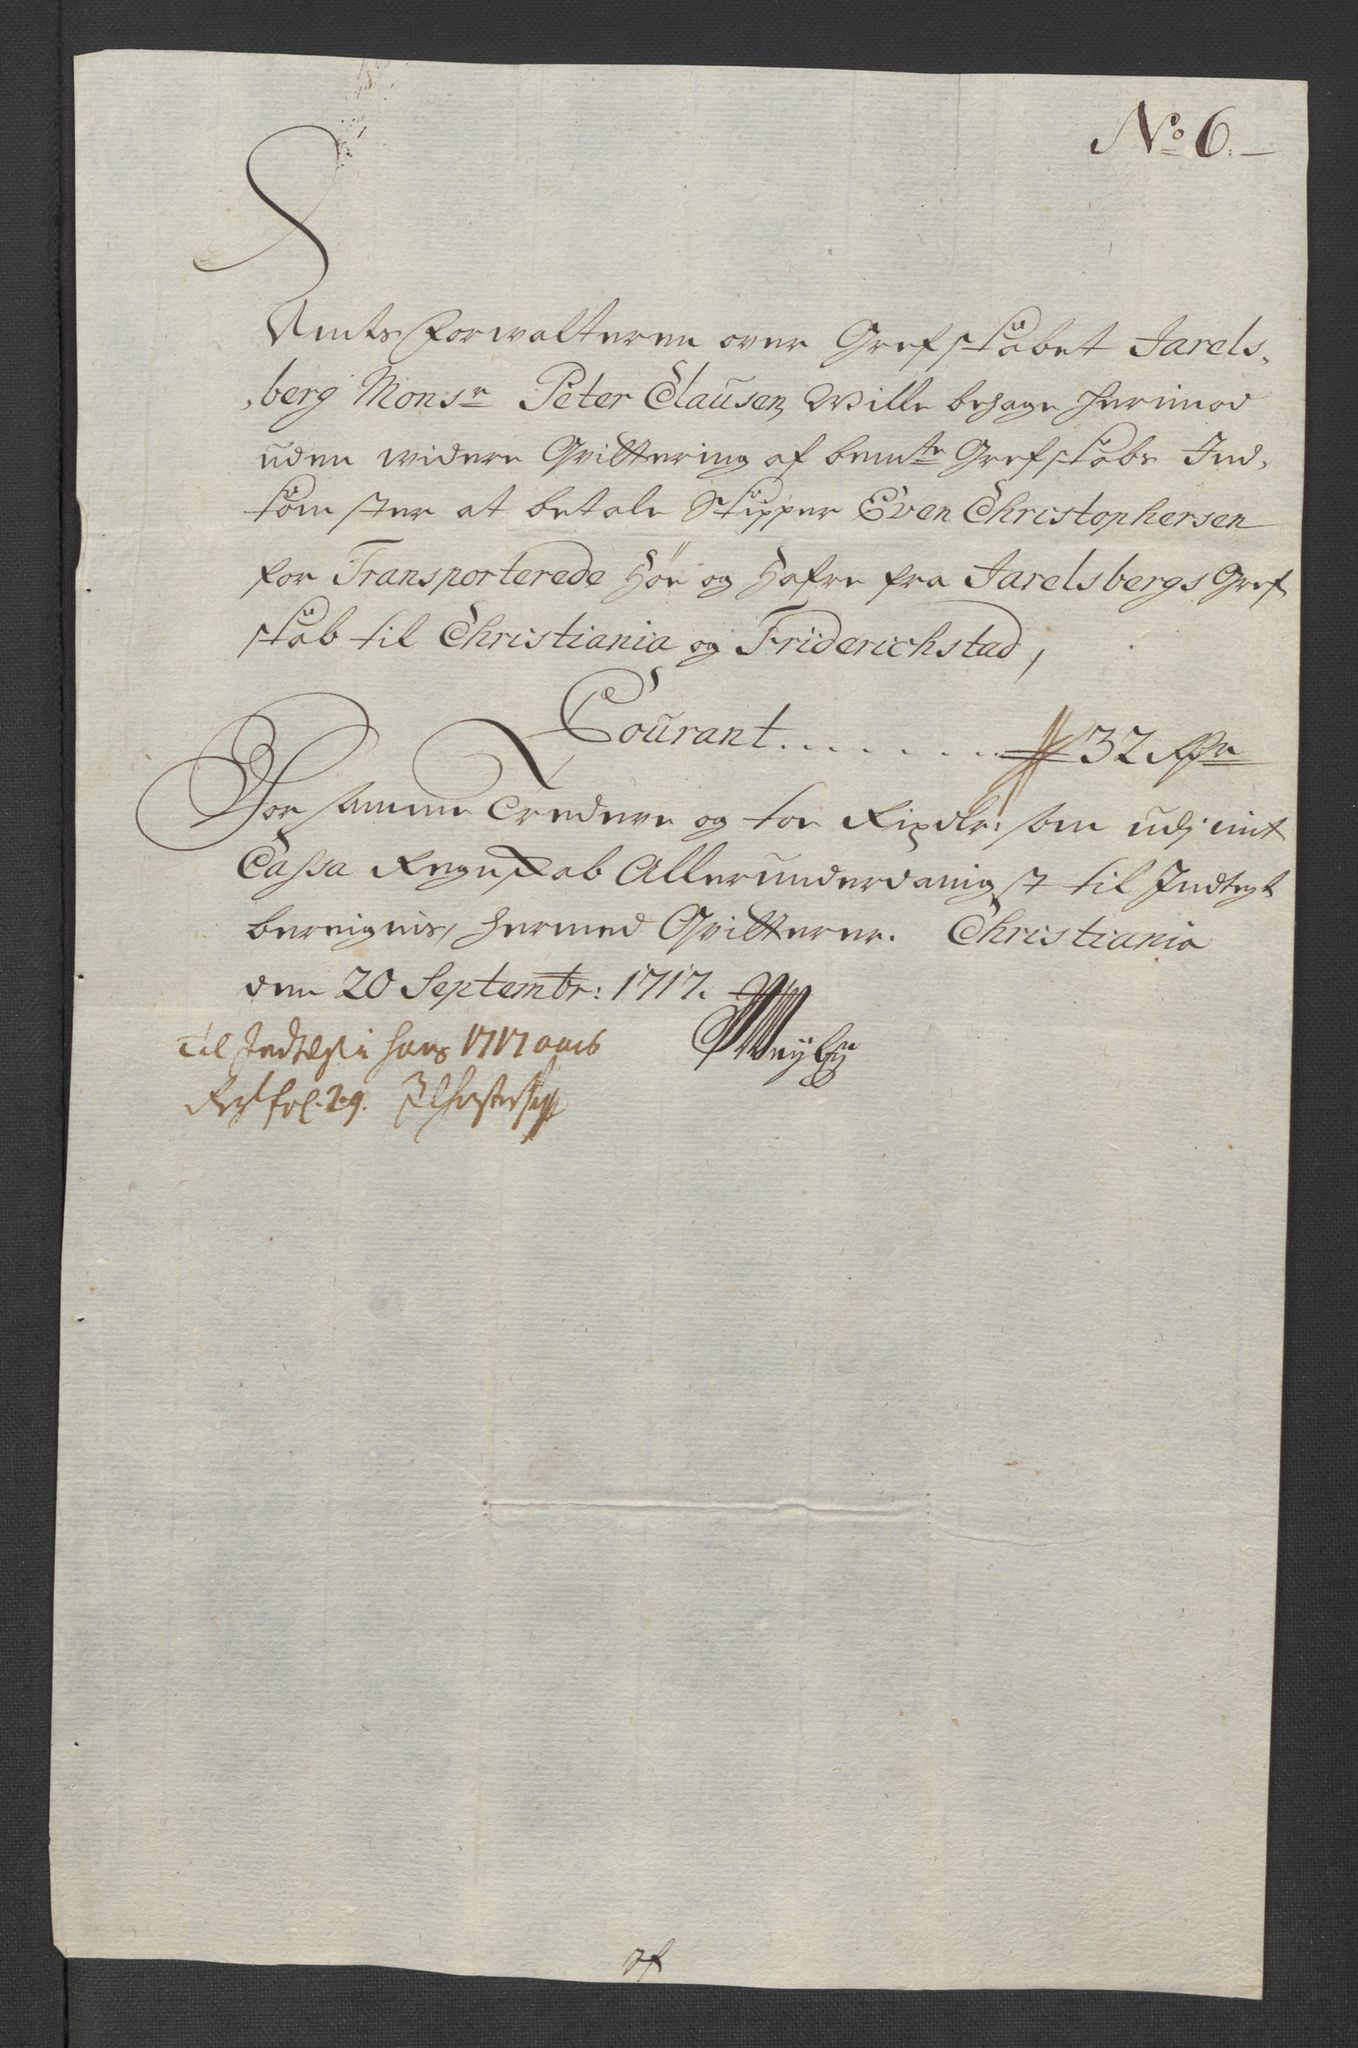 No 6.
Amts Forwalteren over Grefskabet Jarels-
berg Monsr Peter Clausen, Wille behage herimod
uden widere Qvittering af bemte Grefskabs Ind-
komster at betale Skipper Even Christophersen
for Transporterede Höe og Hafre fra Jarelsbergs Gref
skab til Christiania og Friderichstad,
Courant . . . . . . . 32 Rdr
For samme Tredeve og toe Rixdlr: som udj mit
Cassa Regnskab Allerunderdanigst til Indtegt
bereignis, hermed Qvitterer. Christiania
den 20 Septembr: 1717.
Til Indtegt i hans 1717 aars
fol. 29.
af